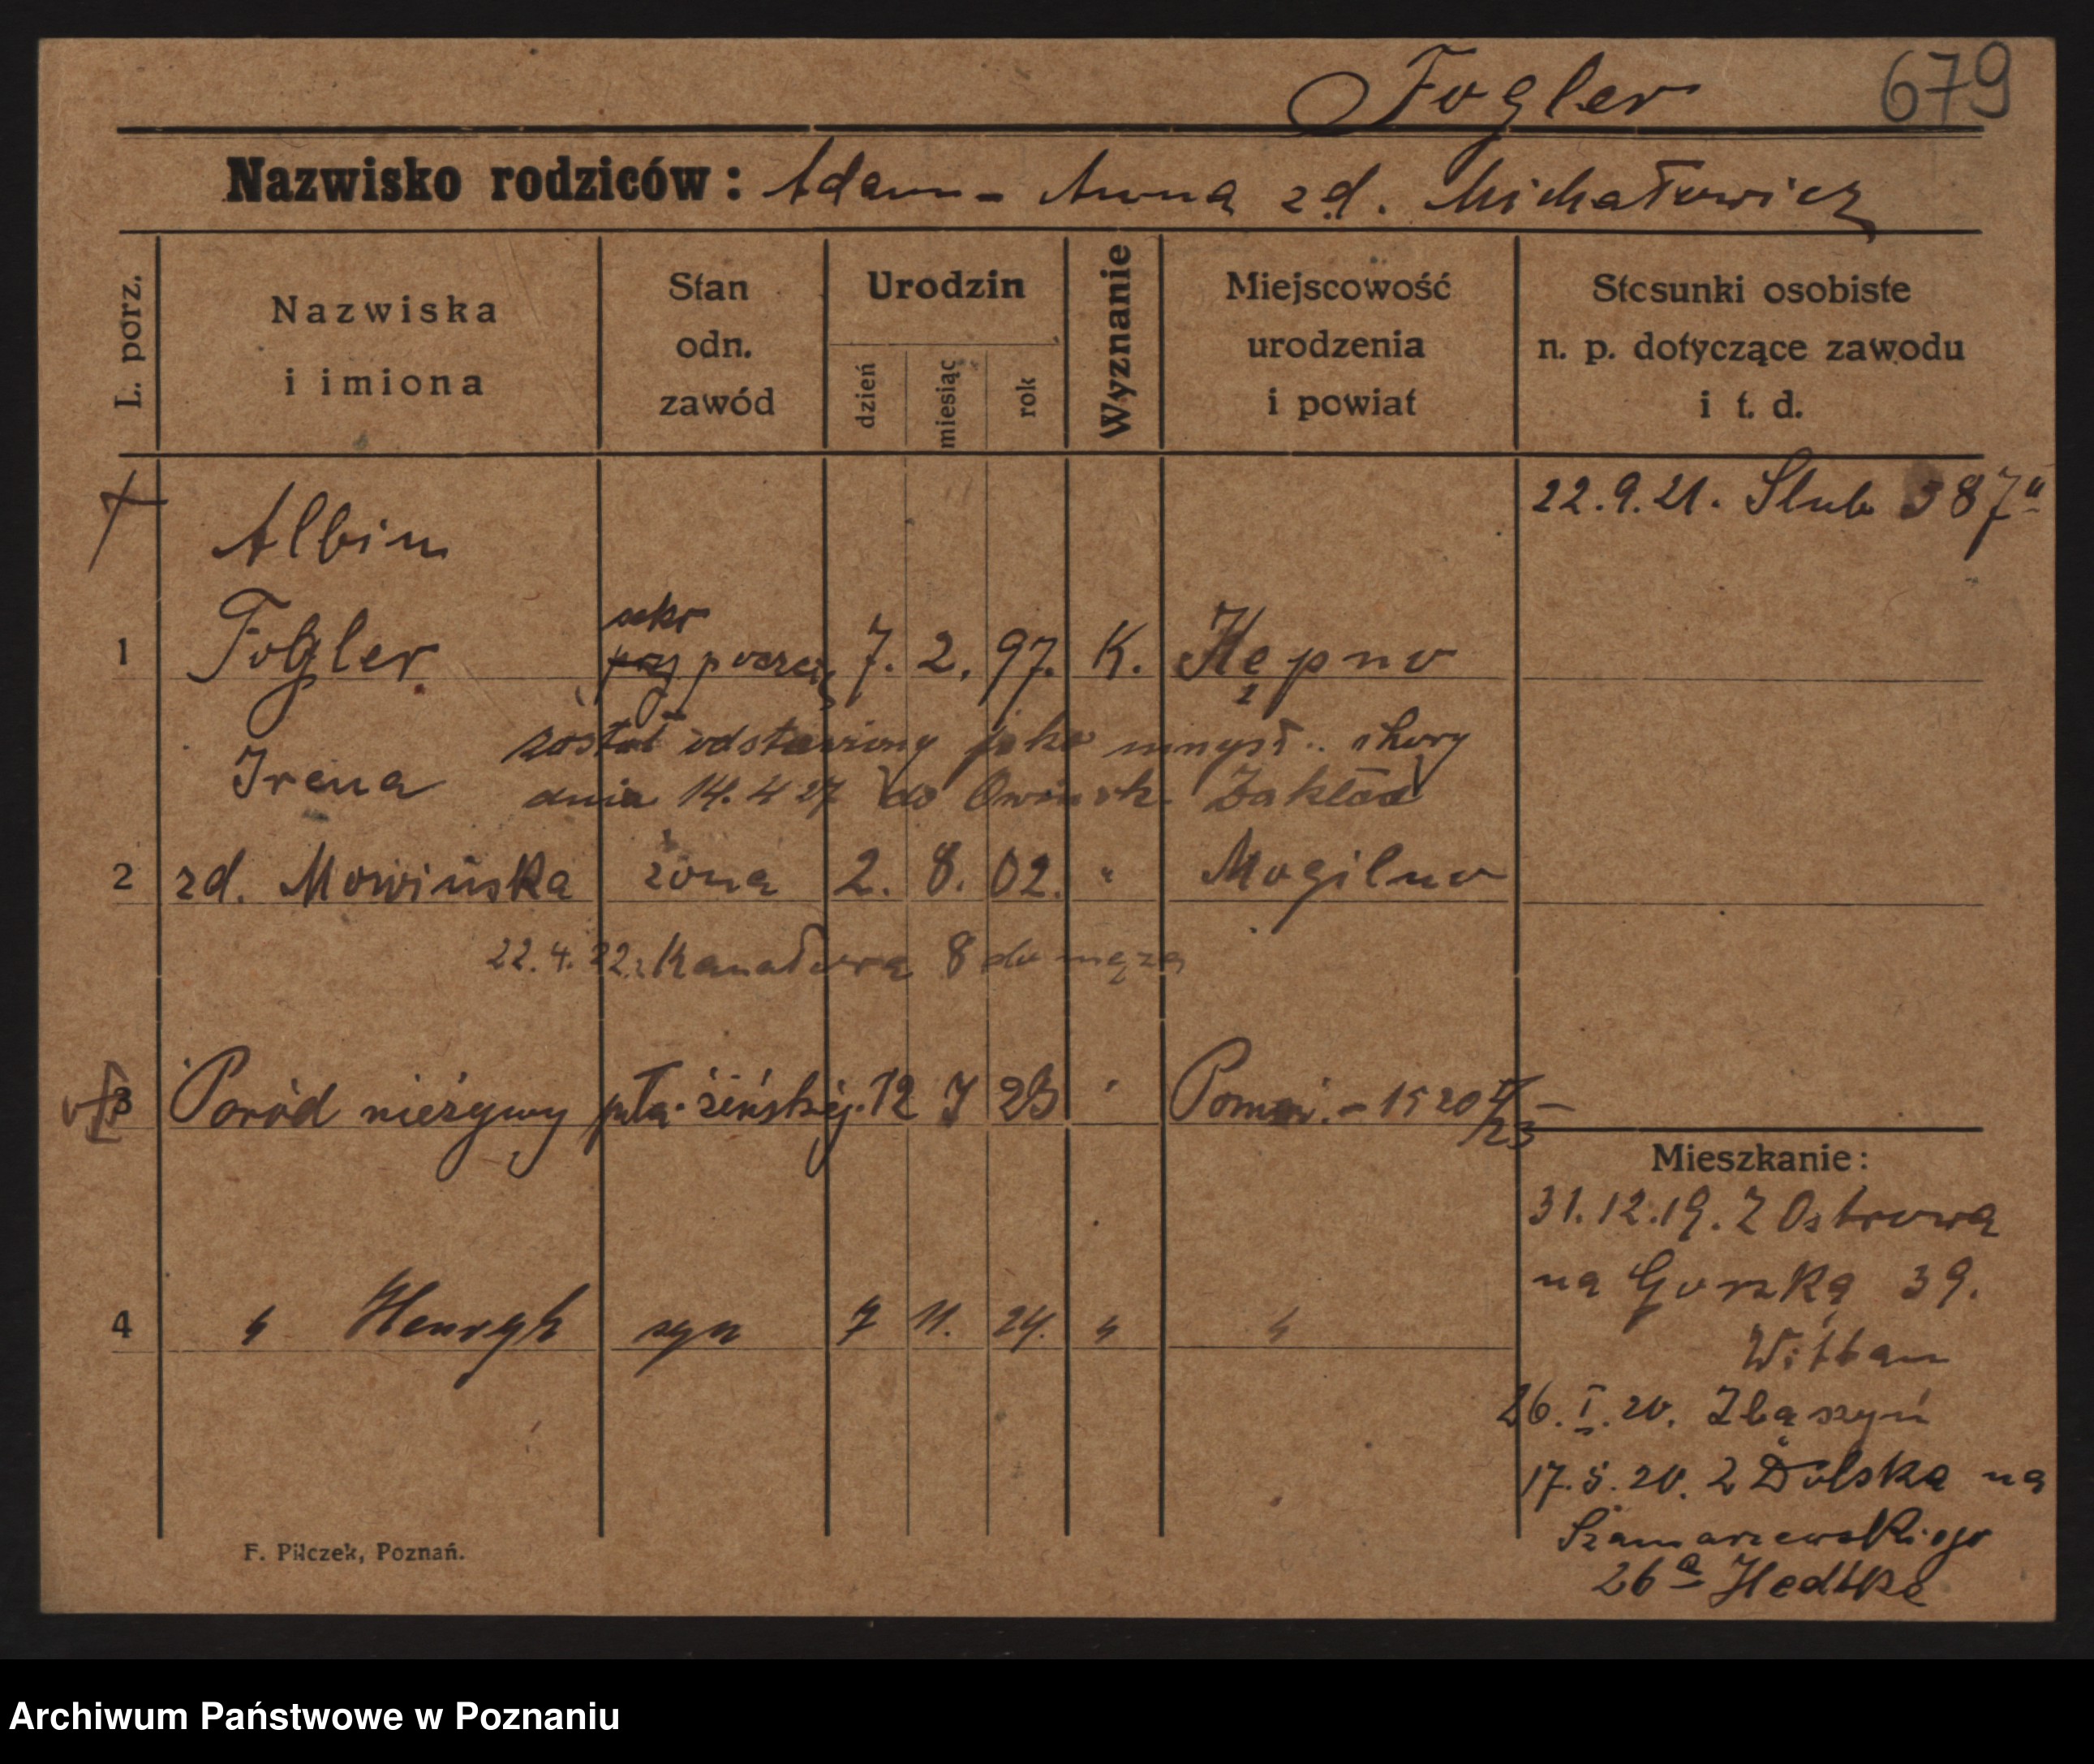 Fogler 679
Nazwisko rodziców: Adam - Anna zd. Michałowicz
L. porz.
Nazwiska
i imiona
Stan
odn.
zawód
Urodzin
dzień
miesiąc
rok
Wyznanie
Miejscowość
urodzenia
i powiat
Stosunki osobiste
n. p. dotyczące zawodu
i t. d.
22.9.21. Slub 587
Albin
sekr
1 Fogler poczt 7. 2. 97. K. Kępno
został odstawiony jako umysł.. chory
Irena
dnia 14. 4 27 do Owinsk. Zakład
2 zd. Mowińska żona 2. 8. 02. " Mogilno
22. 4. 22. Kanałowa 8 do męża
3 Poród nieżywy płci żeńskiej. 12 I 23 1520 II/23
Mieszkanie:
31.12.19. Z Ostrowa
na Gorską 39.
4 " Henryk syn 7 11. 24. " "
Wittan
26. I. 20. Zbąszyń
17. 5. 20. z Dolska na
Szamarzewskiego
26a Hedtke
F. Pilczek, Poznań.
Archiwum Państwowe w Poznaniu